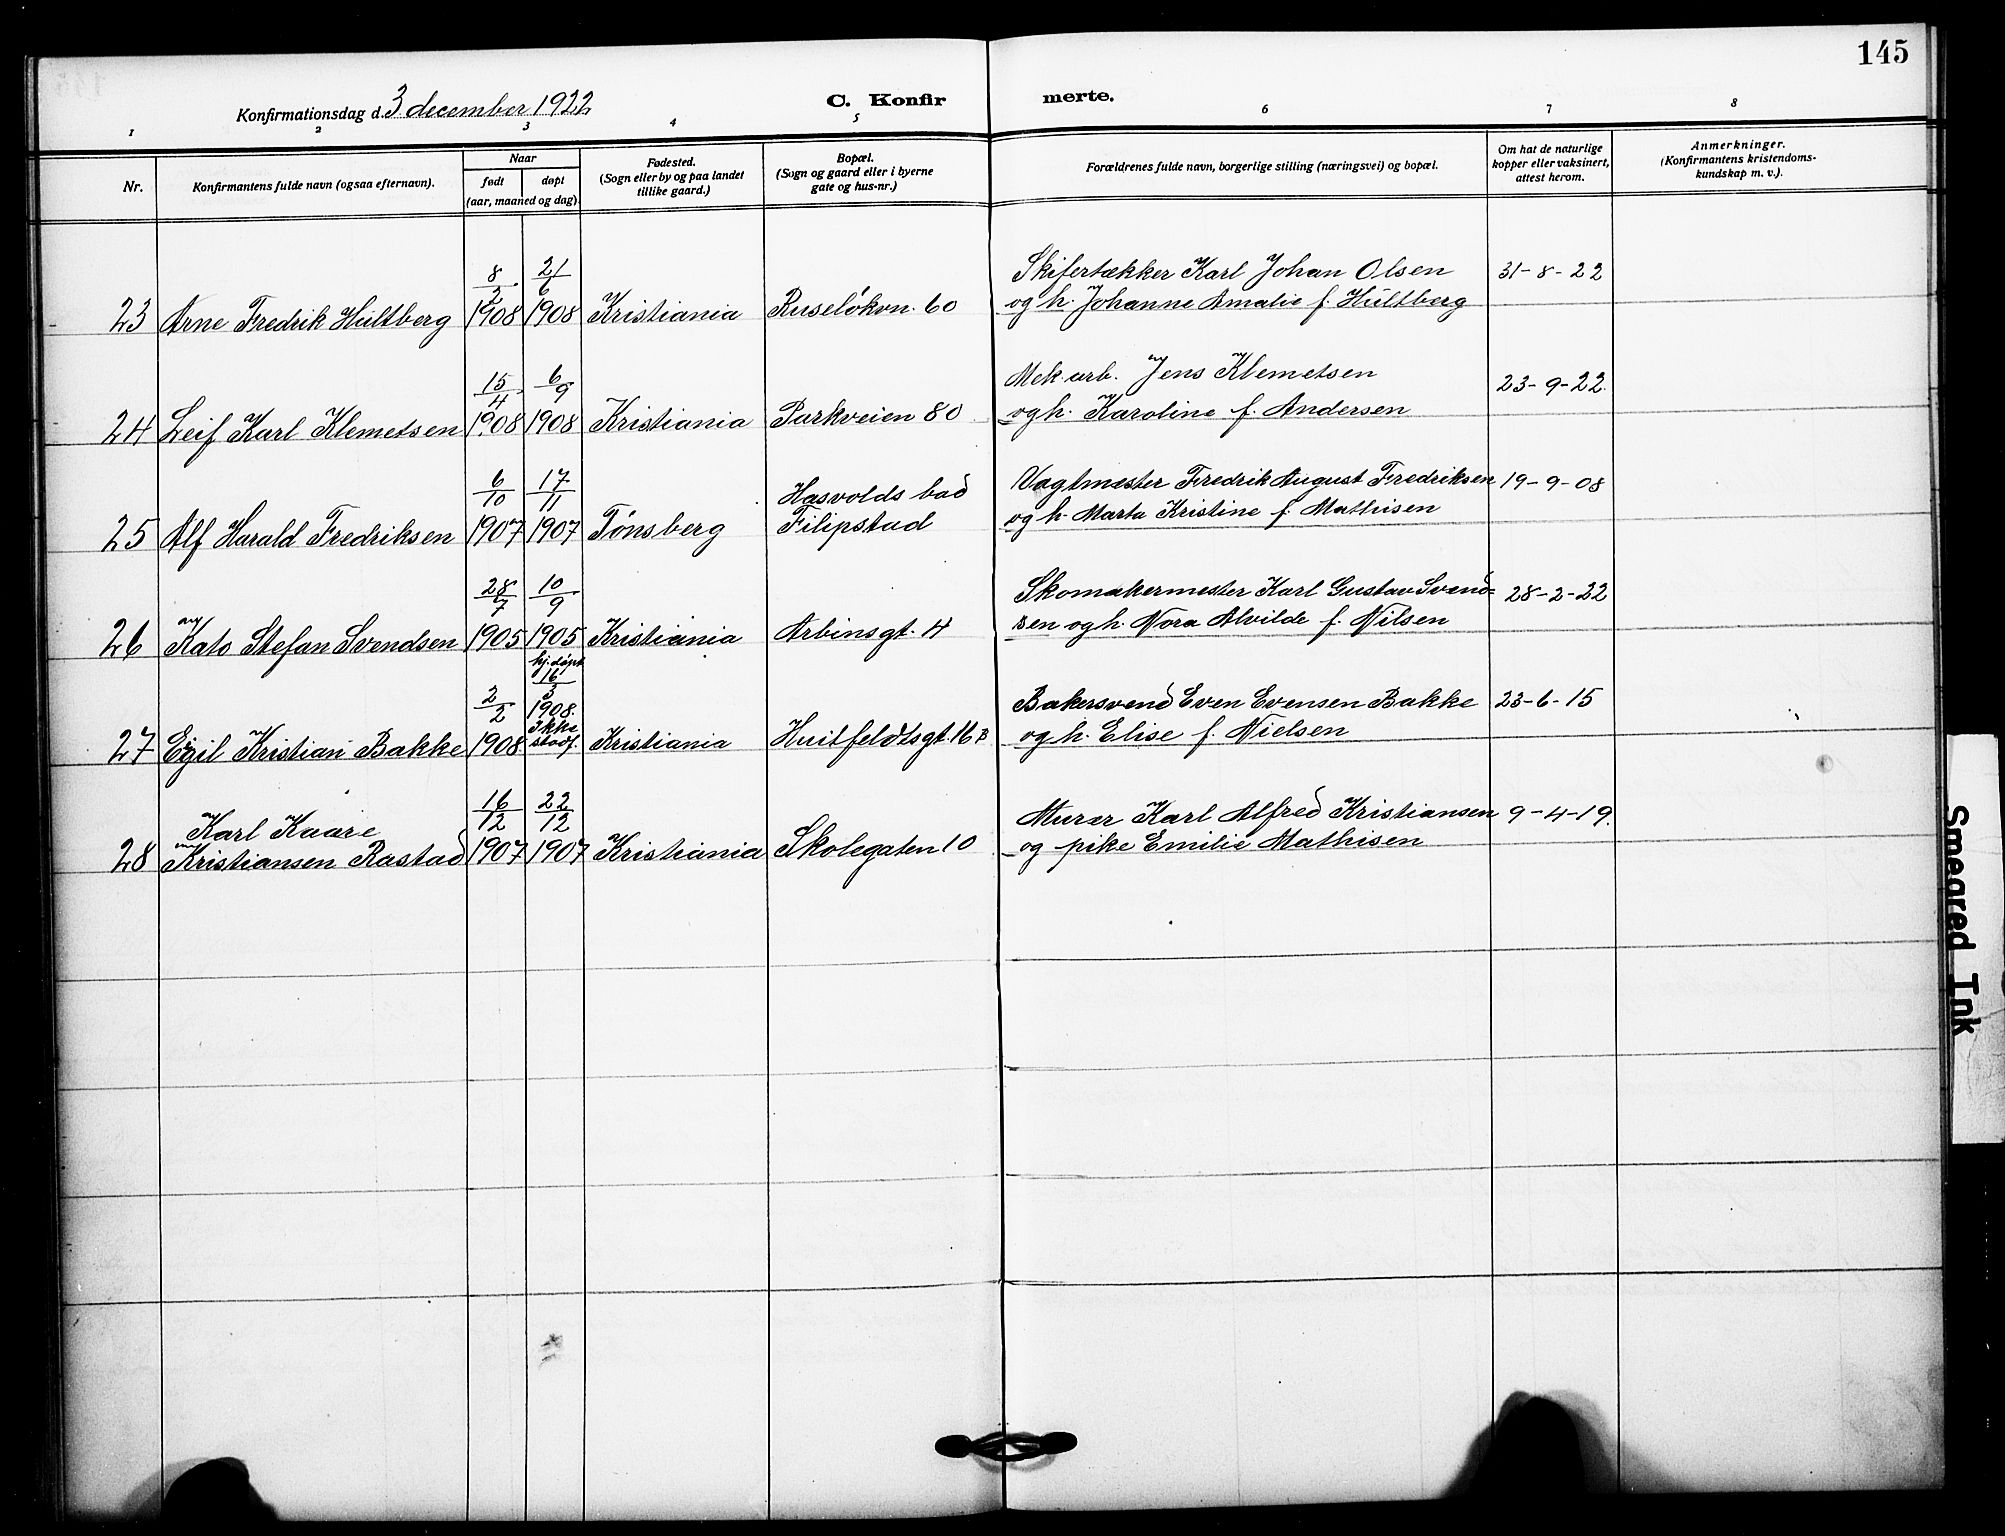 145
Konfirmationsdag d. 3 december 1922
C. Konfirmerte.
1 2 3 4 5 6 7 8
Nr.
Konfirmantens fulde navn (ogsaa efternavn).
Naar
født
døpt
(aar, maaned og dag)
Fødested.
(Sogn eller by og paa landet
tillike gaard.)
Bopæl.
(Sogn og gaard eller i byerne
gate og hus-nr.)
Forældrenes fulde navn, borgerlige stilling (næringsvei) og bopæl.
Om hat de naturlige
kopper eller vaksinert,
attest herom.
Anmerkninger.
(Konfirmantens kristendoms-
kundskap m. v.).
8/3 21/6 Skifertækker Karl Johan Olsen 31-8-22
23 Arne Fredrik Hultberg 1908 1908 Kristiania Ruseløkvn. 60 og h. Johanne Amalie f. Hultberg
15/4 6/9 Mek arb. Jens Klemetsen 23-9-22.
24 Leif Karl Klemetsen 1908 1908 Kristiania Parkveien 80 og h. Karoline f. Andersen
6/10 17/11 Hasvolds bad Vagtmester Fredrik August Fredriksen 19-9-08
25 Alf Harald Fredriksen 1907 1907 Tønsberg Filipstad og h. Marta Kristine f. Mathisen
28/7 10/9 Skomakermester Karl Gustav Svend= 28-2-22
26 Kato Stefan Svendsen 1905 1905 Kristiania Arbinsgt. 4 sen og h. Nora Alvilde f. Nilsen
hj. døpt
2/2 16/3 1908. Bakersvend Even Evensen Bakke 23-6-15
27 Egil Kristian Bakke 1908 Ikke stadf. Kristiania Huitfeldtsgt. 16 B og h. Elise f. Nielsen
Karl Kaare 16/12 22/12 Murer Karl Alfred Kristiansen 9-4-19.
28 Kristiansen Rastad 1907 1907 Kristiania Skolegaten 10 og pike Emilie Mathisen
Smeared Ink